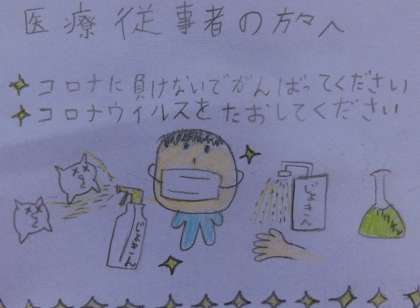 医療従事者の方々へ
コロナに負けないでがんばってください
コロナウイルスをたおしてください
じょきん
じょきん